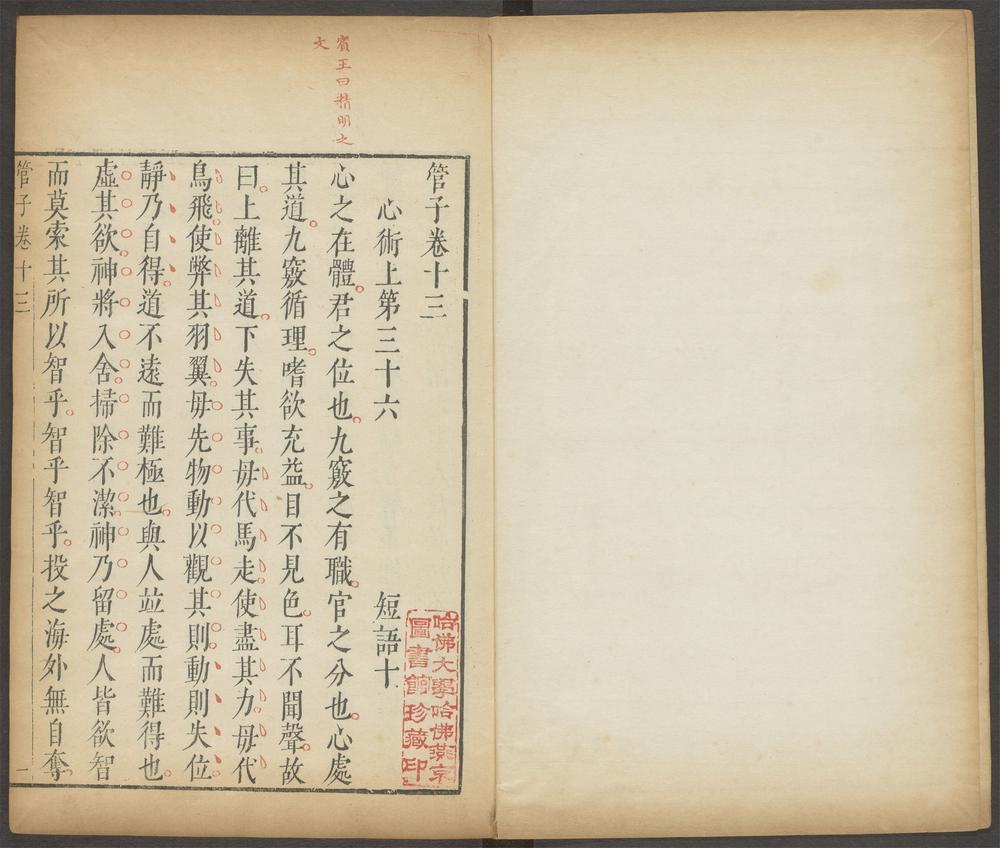 賓王曰精明之
文
管子卷十三
心術上第三十六　短語十
心之在體君之位也九竅之有職官之分也心處
其道九竅循理嗜欲充益目不見色耳不聞聲故
曰上離其道下失其事毋代馬走使盡其力毋代
鳥飛使弊其羽翼毋先物動以觀其則動則失位
靜乃自得道不遠而難極也與人竝處而難得也
虛其欲神將入舍掃除不潔神乃留處人皆欲智
而莫索其所以智乎智乎智乎投之海外無自奪
管子卷十三　一
哈佛大學哈佛燕京
圖書館珍藏印